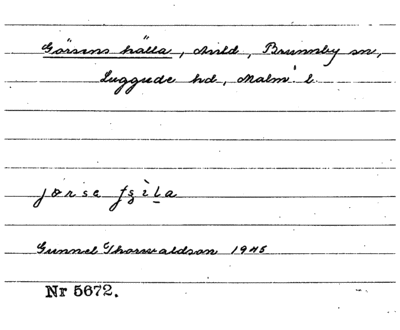 Görsens källa, Arild, Brunnby sn,
Luggude hd, Malm. l.
Gunnel Thorwaldson 1945
Nr 5672.